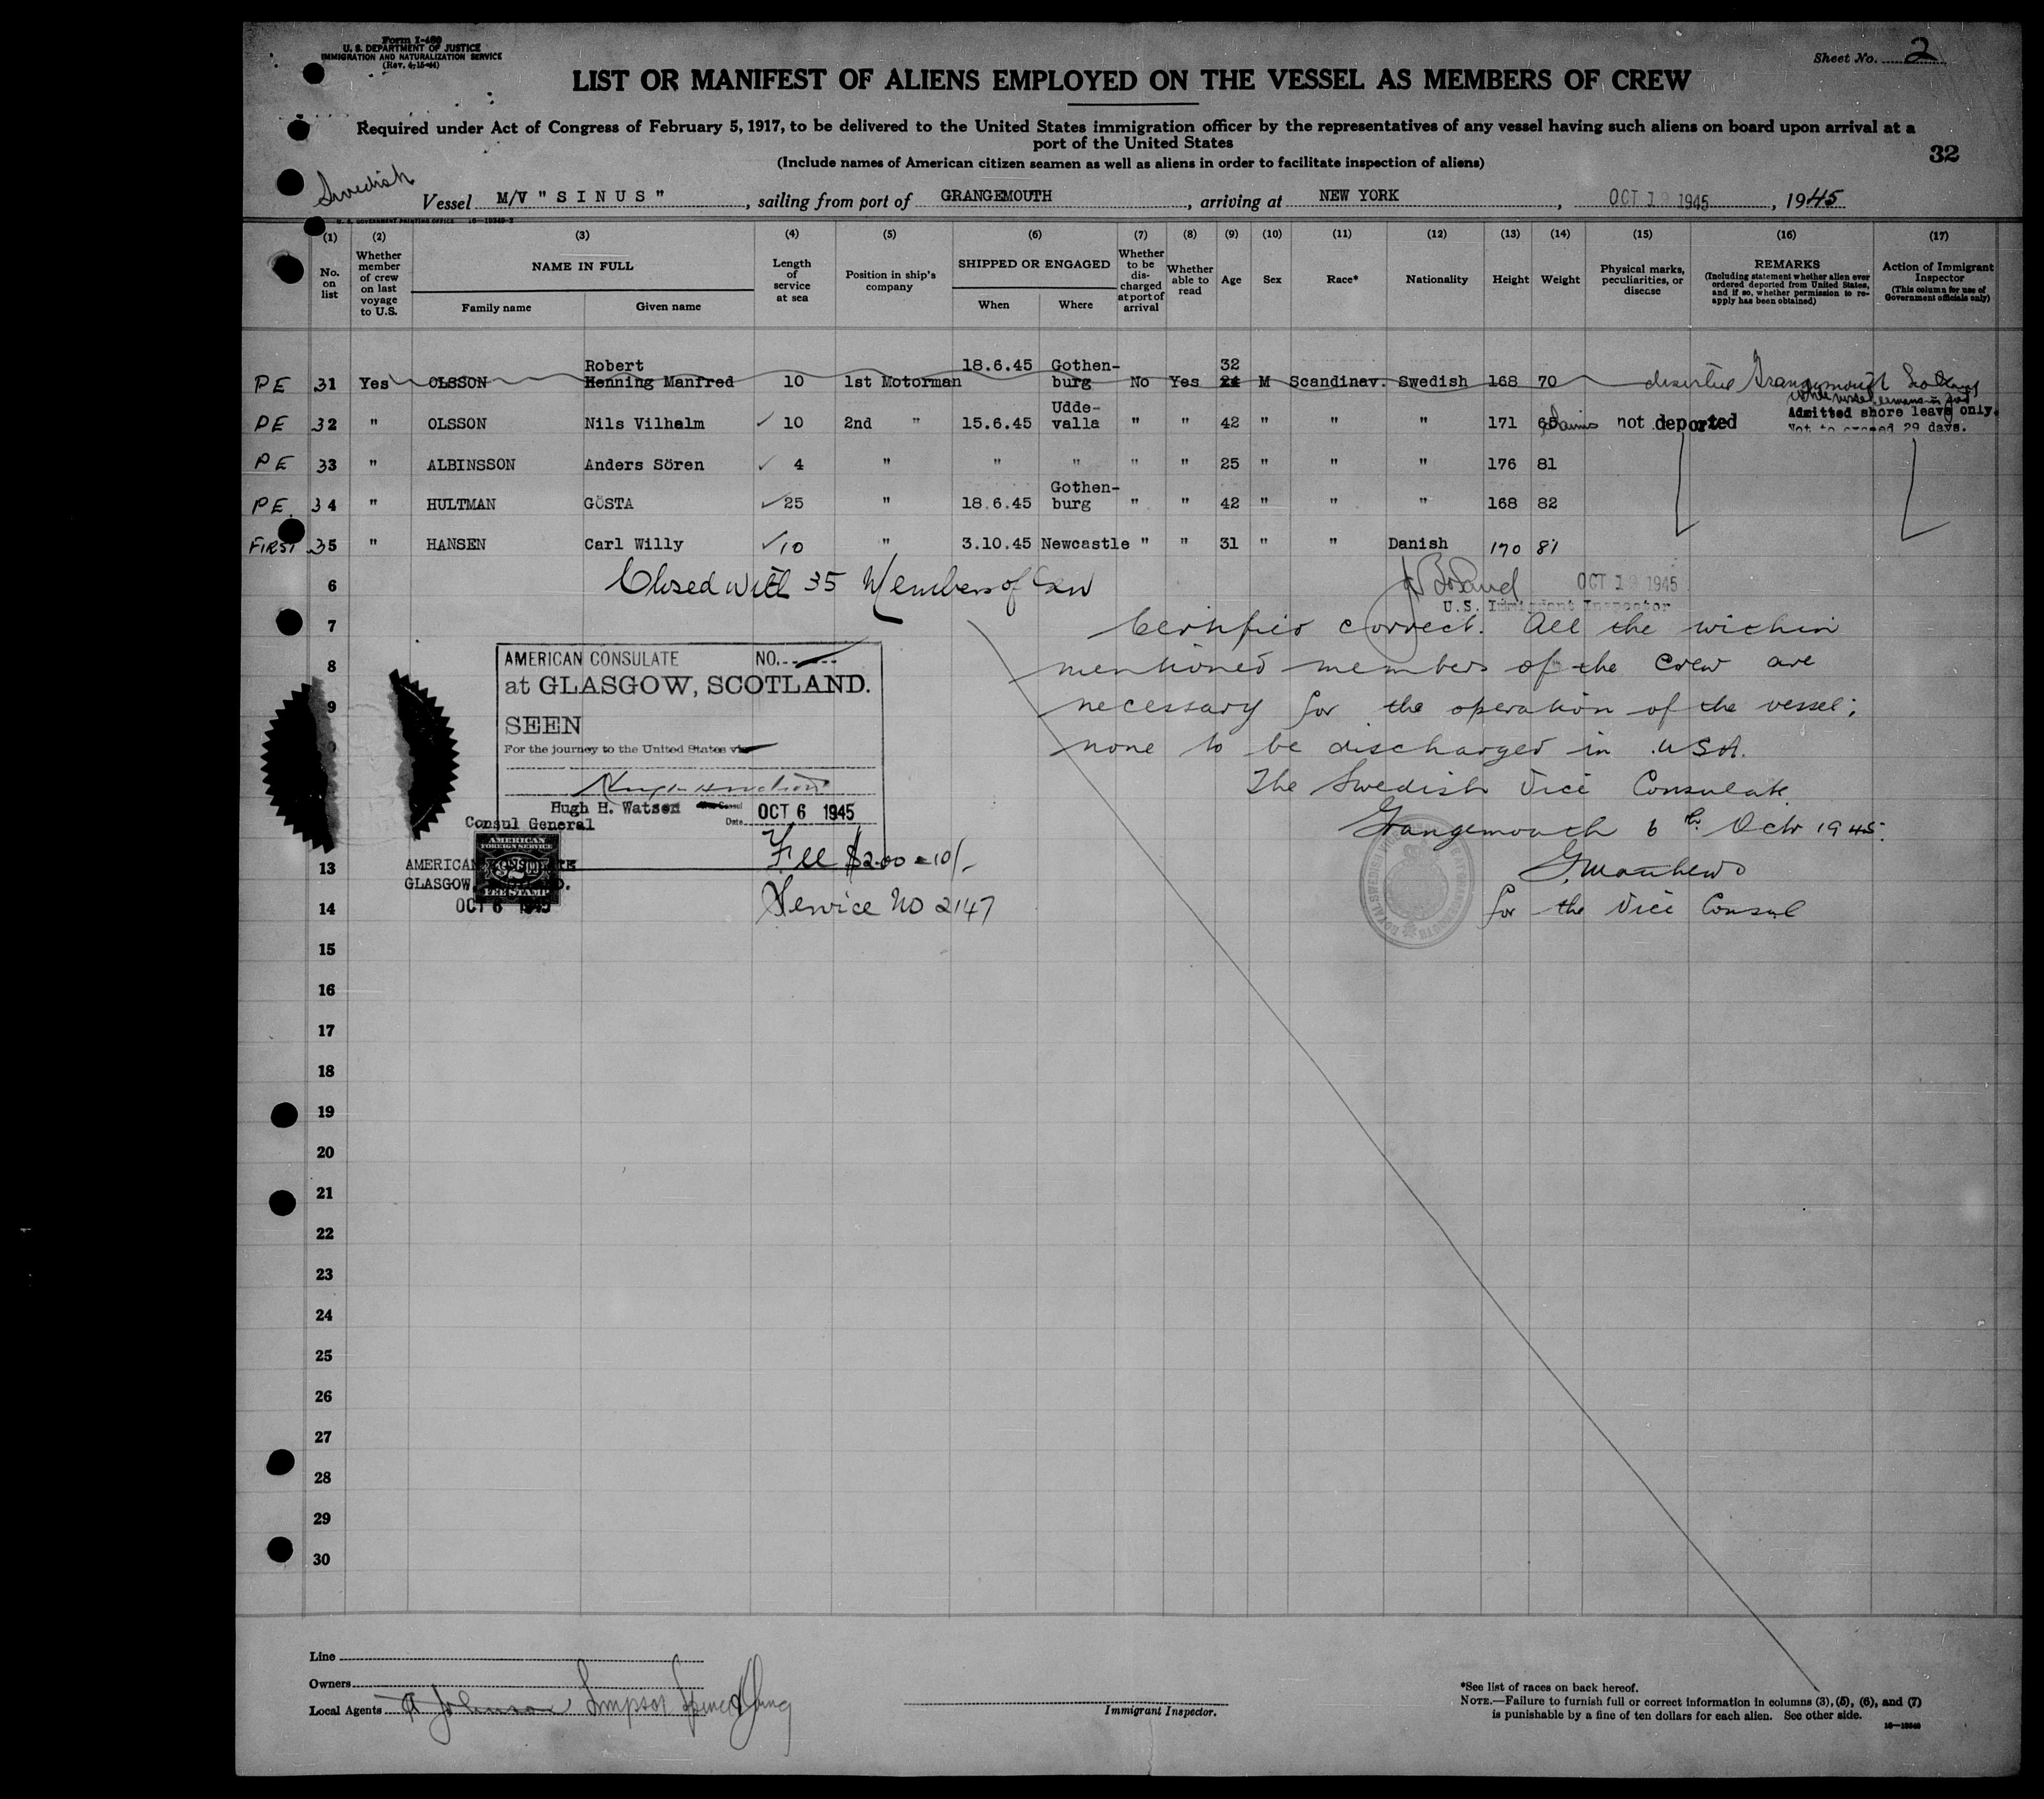 Form I-480
U. S. DEPARTMENT OF JUSTICE
IMMIGRATION AND NATURALIZATION SERVICE
(Rev. 4-15-44)
Sheet No. 2
LIST OR MANIFEST OF ALIENS EMPLOYED ON THE VESSEL AS MEMBERS OF CREW
Required under Act of Congress of February 5, 1917, to be delivered to the United States immigration officer by the representatives of any vessel having such aliens on board upon arrival at a
port of the United States
(Include names of American citizen seamen as well as aliens in order to facilitate inspection of aliens)
32
Swedish Vessel M/V "SINUS", sailing from port of GRANGEMOUTH, arriving at NEW YORK, OCT 19 1945, 1945
U. S. GOVERNMENT PRINTING OFFICE
(1) (2) (3) (4) (5) (6) (7) (8) (9) (10) (11) (12) (13) (14) (15) (16) (17)
No. on list
Whether member of crew on last voyage to U.S.
NAME IN FULL
Family name
Given name
Length of service at sea
Position in ship's company
SHIPPED OR ENGAGED
When
Where
Whether to be discharged at port of arrival
Whether able to read
Age
Sex
Race*
Nationality
Height
Weight
Physical marks, peculiarities, or disease
REMARKS
(Including statement whether alien ever ordered deported from United States, and if so, whether permission to reapply has been obtained)
Action of Immigrant Inspector
(This column for use of Government officials only)
Robert 18.6.45 Gothen- 32
PE 31 Yes OLSSON Henning Manfred 10 1st Motorman burg No Yes 24 M Scandinav. Swedish 168 70 deserted Grangemouth Scotland
while vessel remains in port
Udde- Admitted shore leave only.
PE 32 " OLSSON Nils Vilhelm 10 2nd " 15.6.45 valla " " 42 " " " 171 65 claims not deported Not to exceed 29 days.
PE 33 " ALBINSSON Anders Sören 4 " " " " " 25 " " " 176 81
Gothen-
PE. 34 " HULTMAN GÖSTA 25 " 18.6.45 burg " " 42 " " " 168 82
FIRST 35 " HANSEN Carl Willy 10 " 3.10.45 Newcastle " " 31 " " Danish 170 81
6 Closed with 35 Members of Crew OCT 19 1945
U.S. Immigrant Inspector
7 Certified correct. All the within
8 mentioned members of the crew are
9 necessary for the operation of the vessel;
none to be discharged in USA.
The Swedish Vice Consulate
Grangemouth 6th Octr 1945.
G. Matthews
for the Vice Consul
AMERICAN CONSULATE NO.
at GLASGOW, SCOTLAND.
SEEN
For the journey to the United States via
Hugh H. Watson
Consul General
Date OCT 6 1945
Fee $2.00 = 10/-
Service No 2147
AMERICAN
FOREIGN SERVICE
$2
FEE STAMP
AMERICAN
GLASGOW,
OCT 6 1945
13
14
15
16
17
18
19
20
21
22
23
24
25
26
27
28
29
30
Line
Owners
Local Agents A Johnson Simpson Spence & Young
Immigrant Inspector.
*See list of races on back hereof.
NOTE.—Failure to furnish full or correct information in columns (3), (5), (6), and (7)
is punishable by a fine of ten dollars for each alien. See other side.